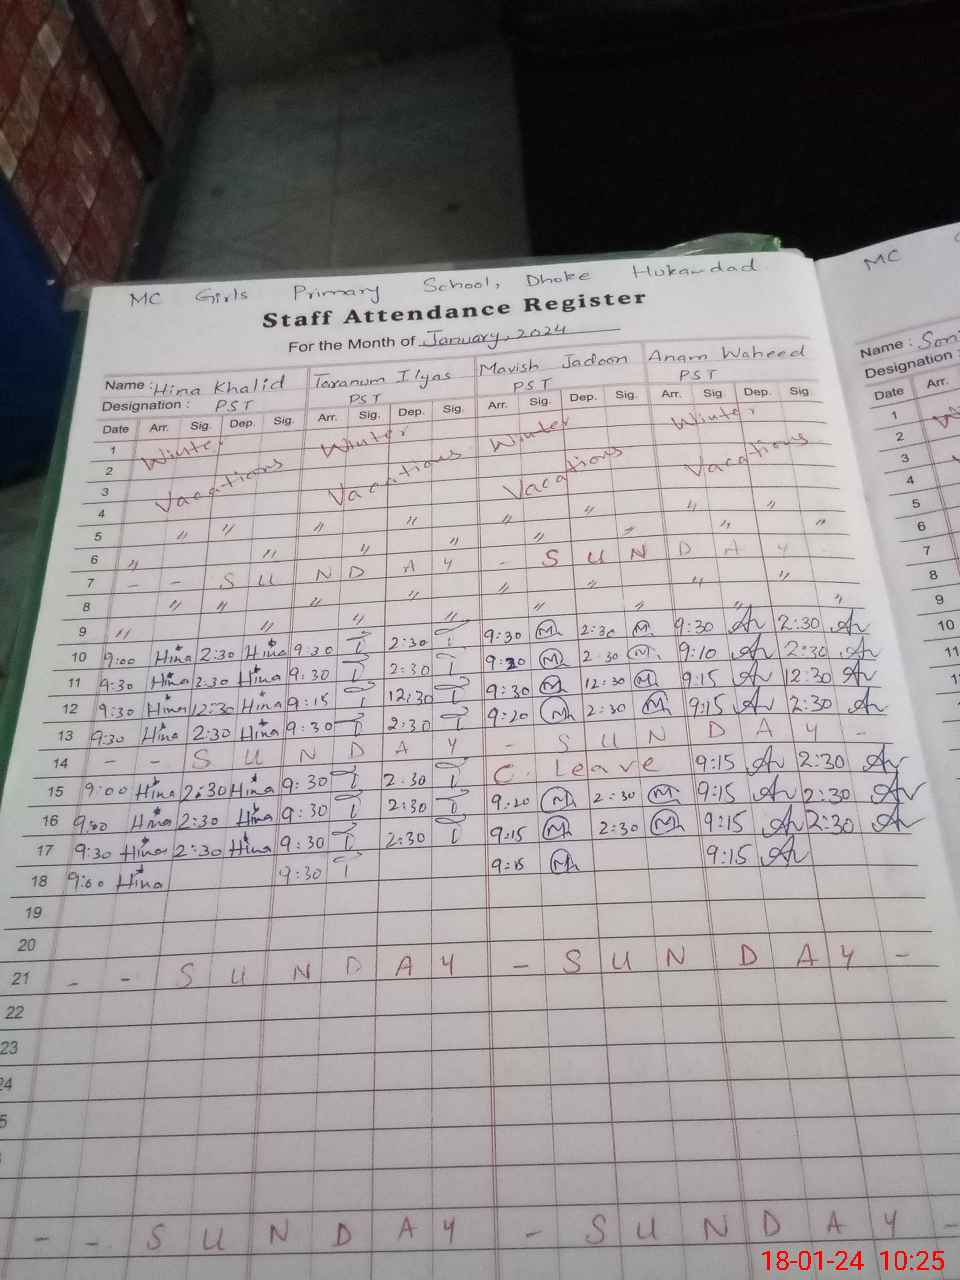 MC Girls Primary School, Dhoke Hukamdad
Staff Attendance Register
For the Month of January, 2024
Name : Hina Khalid Taranum Ilyas Mavish Jadoon Anam Waheed
Designation : PST PST PST PST
Date Arr. Sig. Dep. Sig. Arr. Sig. Dep. Sig. Arr. Sig. Dep. Sig. Arr. Sig. Dep. Sig.
1 Winter Winter Winter Winter
2
3 Vacations Vacations Vacations Vacations
4
5 " " " " " " " "
6 " " " " " " " "
7 - - S U N D A Y - S U N D A Y
8 " " " " " " " "
9 " " " " " " " "
10 9:00 Hina 2:30 Hina 9:30 2:30 9:30 M 2:30 M 9:30 2:30
11 9:30 Hina 2:30 Hina 9:30 2:30 M 2:30 M 9:10 2:30
12 9:30 Hina 12:30 Hina 9:15 12:30 9:30 M 12:30 M 9:15 12:30
13 9:30 Hina 2:30 Hina 9:30 2:30 9:20 M 2:30 M 9:15 2:30
14 - - S U N D A Y - S U N D A Y -
15 9:00 Hina 2:30 Hina 9:30 2:30 C. Leave 9:15 2:30
16 9:00 Hina 2:30 Hina 9:30 2:30 9:20 M 2:30 M 9:15 2:30
17 9:30 Hina 2:30 Hina 9:30 2:30 9:15 M 2:30 M 9:15 2:30
18 9:00 Hina 9:30 9:15 M 9:15
19
20
21 - - S U N D A Y - S U N D A Y -
22
23
24
- - S U N D A Y - S U N D A Y -
MC
Name : 
Designation :
Date Arr.
1
2
3
4
5
6
7
8
9
10
11
18-01-24 10:25